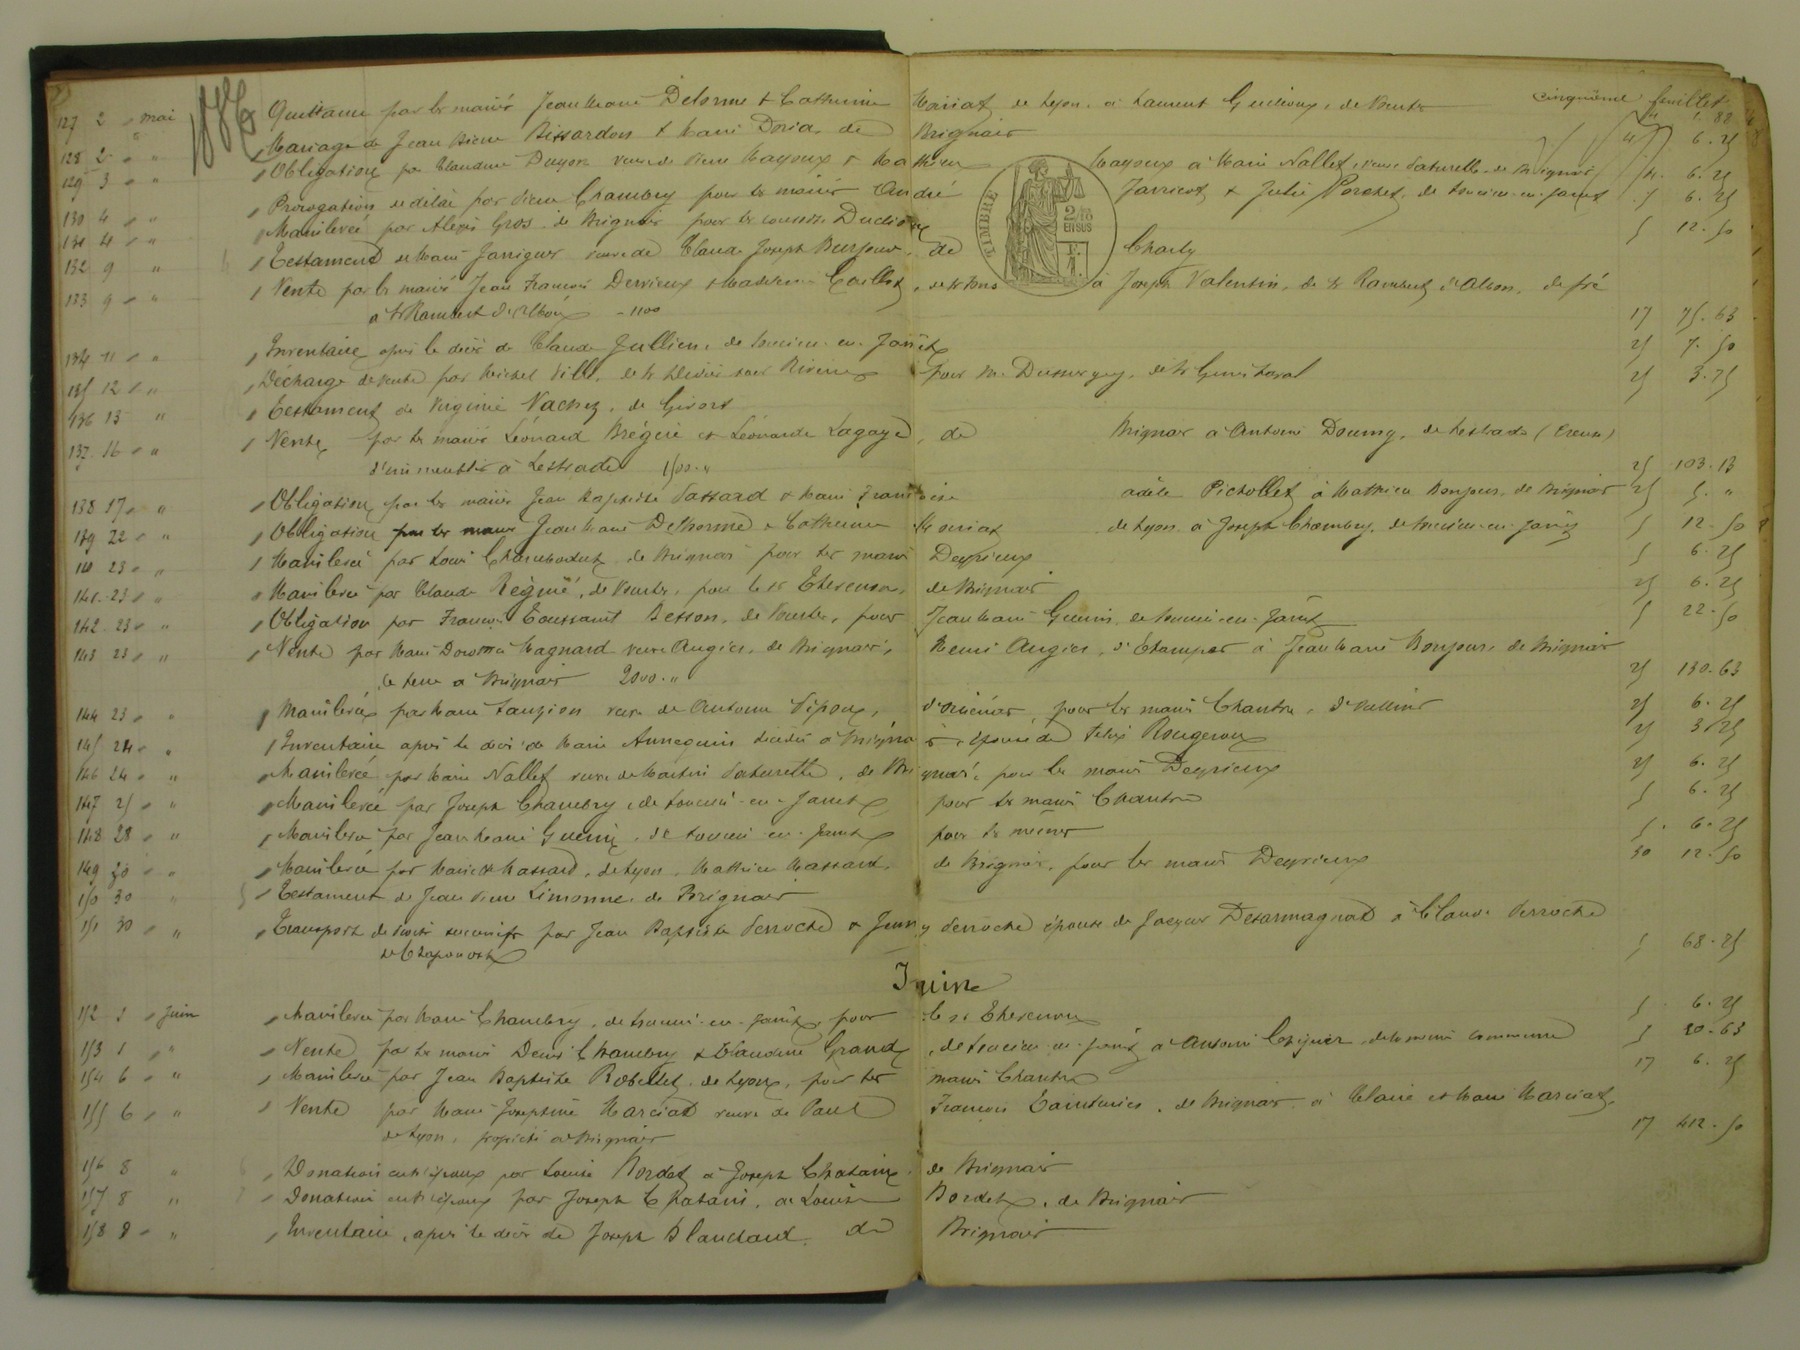 1886
cinquième feuillet
127 2 " mai Quittance par les mariés Jean Marie Delorme & Catherine Mariat de Lyon, à Laurent Guilloux, de Vourles 1. 88
128 2 " " Mariage de Jean Pierre Bissardon & Marie Doria, de Brignais 6. 25
129 3 " " Obligation par Claudine veuve de Pierre Mayoux & Mathieu Mayoux à Marie Nallet, veuve de Brignais 6. 25
TIMBRE
2/10 EN SUS
F. 1.
130 4 " " Prorogation de délai par Pierre Chambry pour les mariés André Jarricot & Julie Porchet, de Soucieu-en-Jarret 5 6. 25
131 4 " " Mainlevée par Alexis Gros, de Brignais pour les consorts 5 12. 50
132 9 " " Testament de Marie veuve de Claude Joseph de Charly
133 9 " " Vente par les mariés Jean François Derrieux & à Joseph Valentin, de St Rambert d'Albon, de pré
à St Rambert d'Albon - 1100 17 75. 63
134 11 " " Inventaire après le décès de Claude Jullien, de Soucieu-en-Jarret 25 7. 50
135 12 " " Décharge de vente par Michel Vill, de St Didier sous Riverie pour Mr. de St Genis Laval 25 3. 75
136 13 " Testament de Virginie Nachez, de Givors
137 16 " " Vente par les mariés Léonard Brégère et Léonarde Lagaye, de Brignais à Antoine de Lestrade (Creuse)
d'un immeuble à Lestrade 1500. " 25 103. 13
138 17 " " Obligation par les mariés Jean Baptiste Passard & Marie Françoise adèle Pichollet à Mathieu Bonjour, de Brignais 25 5. "
139 22 " " Obligation par les mariés Jean Marie Delhorme & Catherine Mariat de Lyon à Joseph Chambry, de Soucieu-en-Jarret 5 12. 50
140 23 " " Mainlevée par Louis de Brignais pour les mariés Deyrieux 5 6. 25
141 23 " " Mainlevée par Claude Régnié, de Vourles, pour le sr Thevenon, de Brignais 25 6. 25
142 23 " " Obligation par François Toussaint Besson, de Vourles, pour Jean Marie Guerin, de Soucieu-en-Jarret 5 22. 50
143 23 " " Vente par Marie Magnard veuve Augier, de Brignais, Remi Augier, d'Etampes à Jean Marie Bonjour, de Brignais
de terre à Brignais 2000. " 25 130. 63
144 23 " " Mainlevée par Marie veuve de Antoine d'Oriénas, pour les mariés Chantre, d' 25 6. 25
145 24 " " Inventaire après le décès de Marie Annequin décédée à Brignais, épouse de Félix Rougeroux 25 3. 75
146 24 " " Mainlevée par Marie Nallet veuve de Martin de Brignais, pour les mariés Deyrieux 25 6. 25
147 25 " " Mainlevée par Joseph Chambry, de Soucieu-en-Jarret pour les mariés Chantre 5 6. 25
148 28 " " Mainlevée par Jean Marie Guerin, de Soucieu-en-Jarret pour les mêmes 5 6. 25
149 30 " " Mainlevée par Massard, de Lyon, Mathieu Massard, de Brignais, pour les mariés Deyrieux 50 12. 50
150 30 " Testament de Jean Pierre Limonne, de Brignais
151 30 " " Transport de droits successifs par Jean Baptiste Perroche & Jenny Perroche épouse de Jacques Desarmagnac à Claude Perroche
de Chaponost 5 68. 25
Juin
152 1 " Juin Mainlevée par Marie Chambry, de Soucieu-en-Jarret, pour le sr Thevenon 5 6. 25
153 1 " " Vente par les mariés Denis Chambry & Claudine Grand, de Soucieu-en-Jarret à Antoine de la même commune 5 20. 63
154 6 " " Mainlevée par Jean Baptiste Robellet, de Lyon, pour les mariés Chantre 17 6. 25
155 6 " " Vente par Marie Josephine Marciat veuve de Paul François Tainturier, de Brignais, à Claire et Marie Marciat,
de Lyon, propriété à Brignais 17 412. 50
156 8 " Donation entre époux par Louise Bordet à Joseph Chatain, de Brignais
157 8 " Donation entre époux par Joseph Chatain, à Louise Bordet, de Brignais
158 8 " " Inventaire, après le décès de Joseph Blanchard, de Brignais